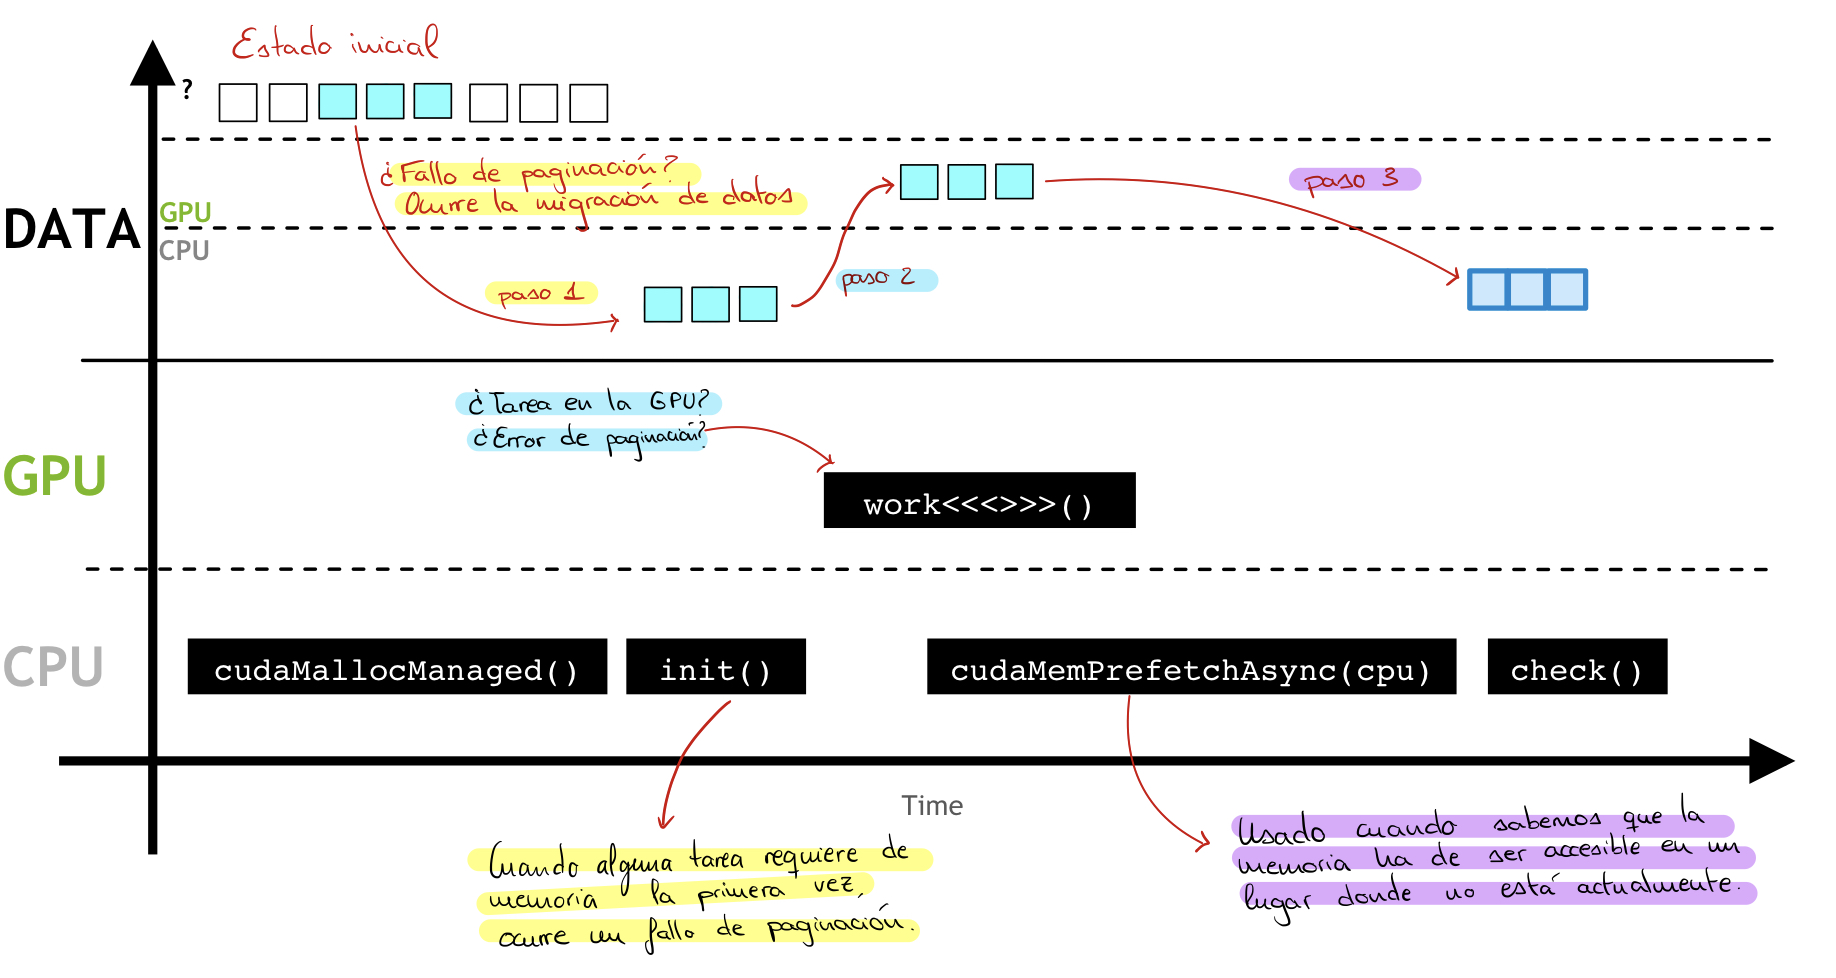 Estado inicial
?
¿Fallo de paginación?
Ocurre la migración de datos
paso 3
DATA
GPU
CPU
paso 1
paso 2
¿Tarea en la GPU?
¿Error de paginación?
GPU
work<<<>>>()
CPU
cudaMallocManaged()
init()
cudaMemPrefetchAsync(cpu)
check()
Time
Cuando alguna tarea requiere de
memoria la primera vez,
ocurre un fallo de paginación.
Usado cuando sabemos que la
memoria ha de ser accesible en un
lugar donde no está actualmente.